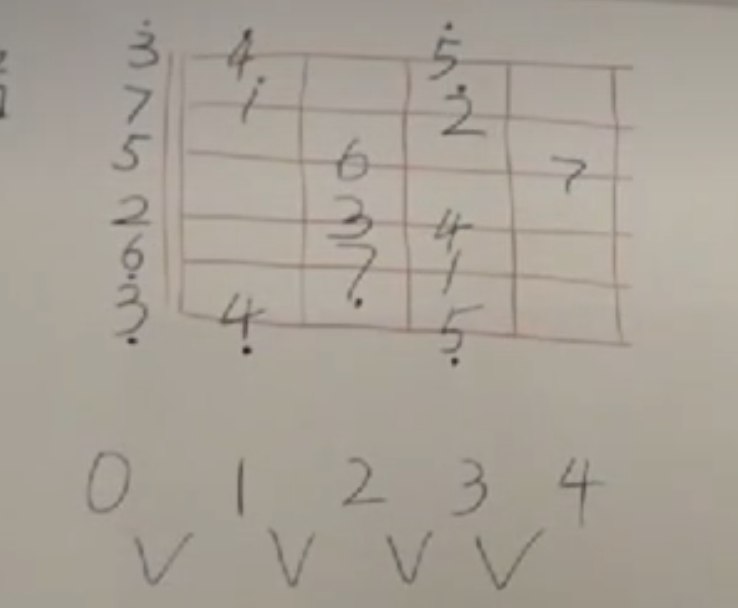 3̇ 4̇ 5̇
7 1̇ 2̇
5 6 7
2 3 4
6̣ 7̣ 1
3̣ 4̣ 5̣
0 1 2 3 4
V V V V